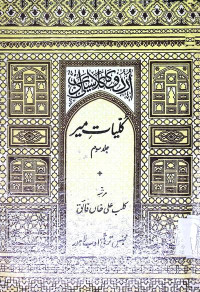 اردو کا کلاسیکی ادب
کلیاتِ میر
جلد سوم
مرتبہ
کلب علی خاں فائق
مجلس ترقی ادب لاہور